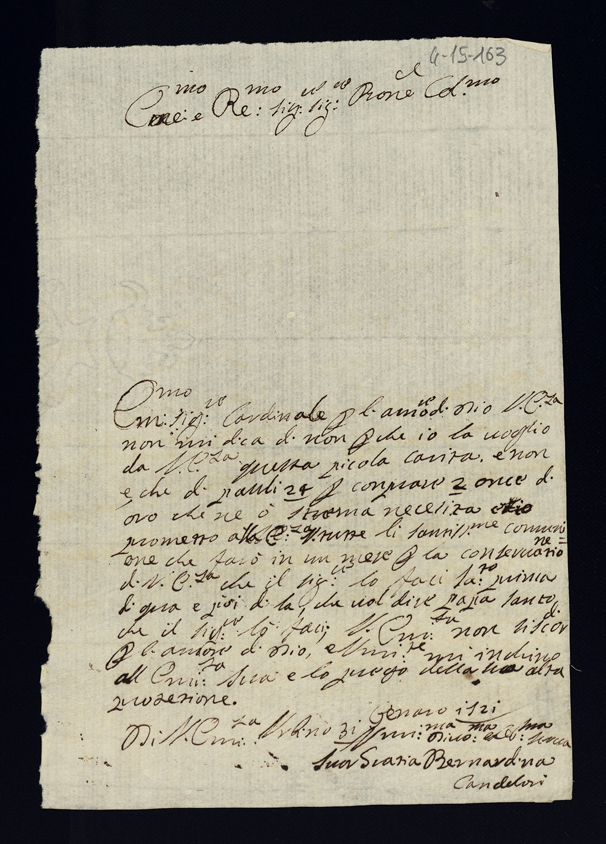 4-15-163
Em.mo e Re:mo sig:re sig:re Pron.e Col.mo
Em.mo sig:re Cardinale p l'amor d. Dio V.E.za
non mi dica di non p che io la voglio
da V.E.za questa picola carita. e non
e che di pauli 24 p conprare 2 once di
oro che ne ò strema necesita e io
prometto all E.za tutte li santiss.me comuni
one che farò in un mese p la conservatio
ne =
di V.E.za che il sig:re lo faci Sa:to prima
di qua e poi di la, che vol dire papa santo,
che il sig:re lo faci, V. Emi:za non si scor
di
p l'amore di Dio, e mi inchino
all Emi:za sua e lo prego della sua alta
protezione.
Di V. Emi:za Urbino 31 Genaro 1721
Umi:ma Divo:ma et Ob:ma serva
Suor Maria Bernardina
Candelori